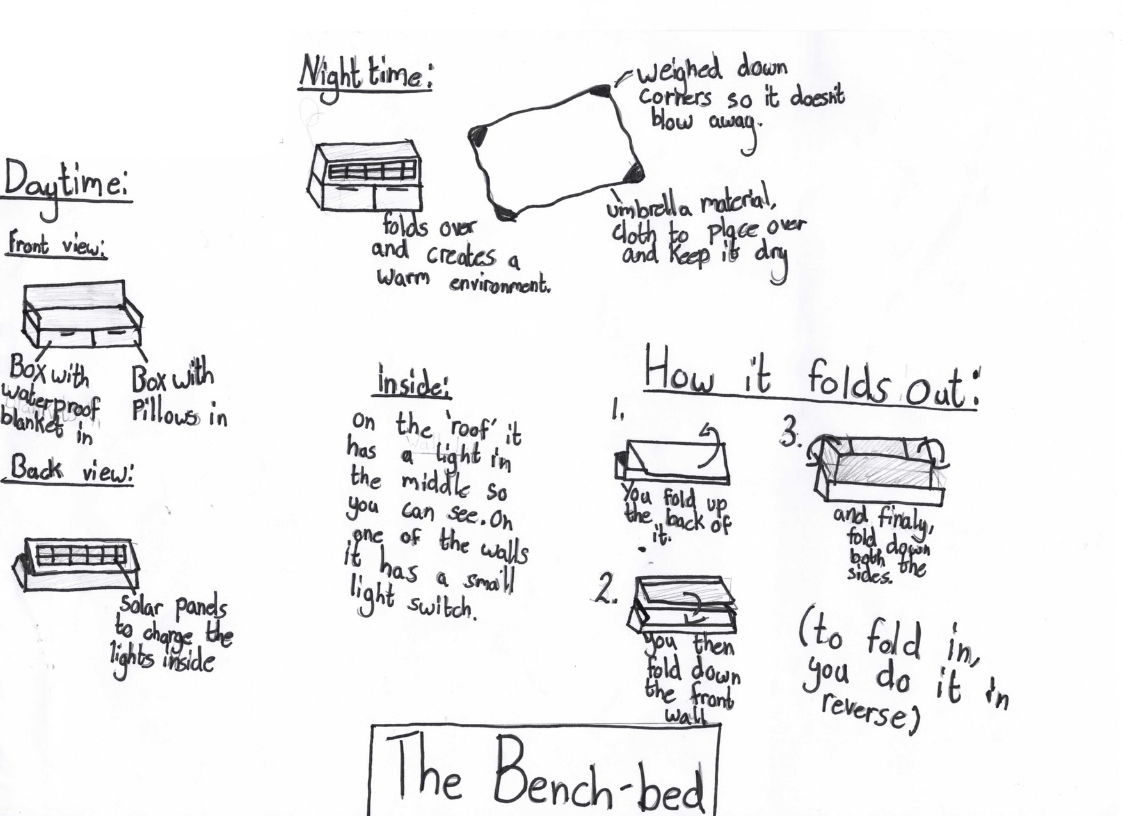 Night time:
weighed down
corners so it doesn't
blow away.
umbrella material,
cloth to place over
and keep it dry
folds over
and creates a
warm environment.
Daytime:
Front view:
Box with
waterproof
blanket in
Box with
Pillows in
Back view:
Solar panels
to charge the
lights inside
inside:
on the 'roof' it
has a light in
the middle so
you can see. On
one of the walls
it has a small
light switch.
How it folds out:
1.
You fold up
the back of
it.
2.
you then
fold down
the front
wall
3.
and finaly,
fold down
both the
sides.
(to fold in,
you do it in
reverse)
The Bench-bed